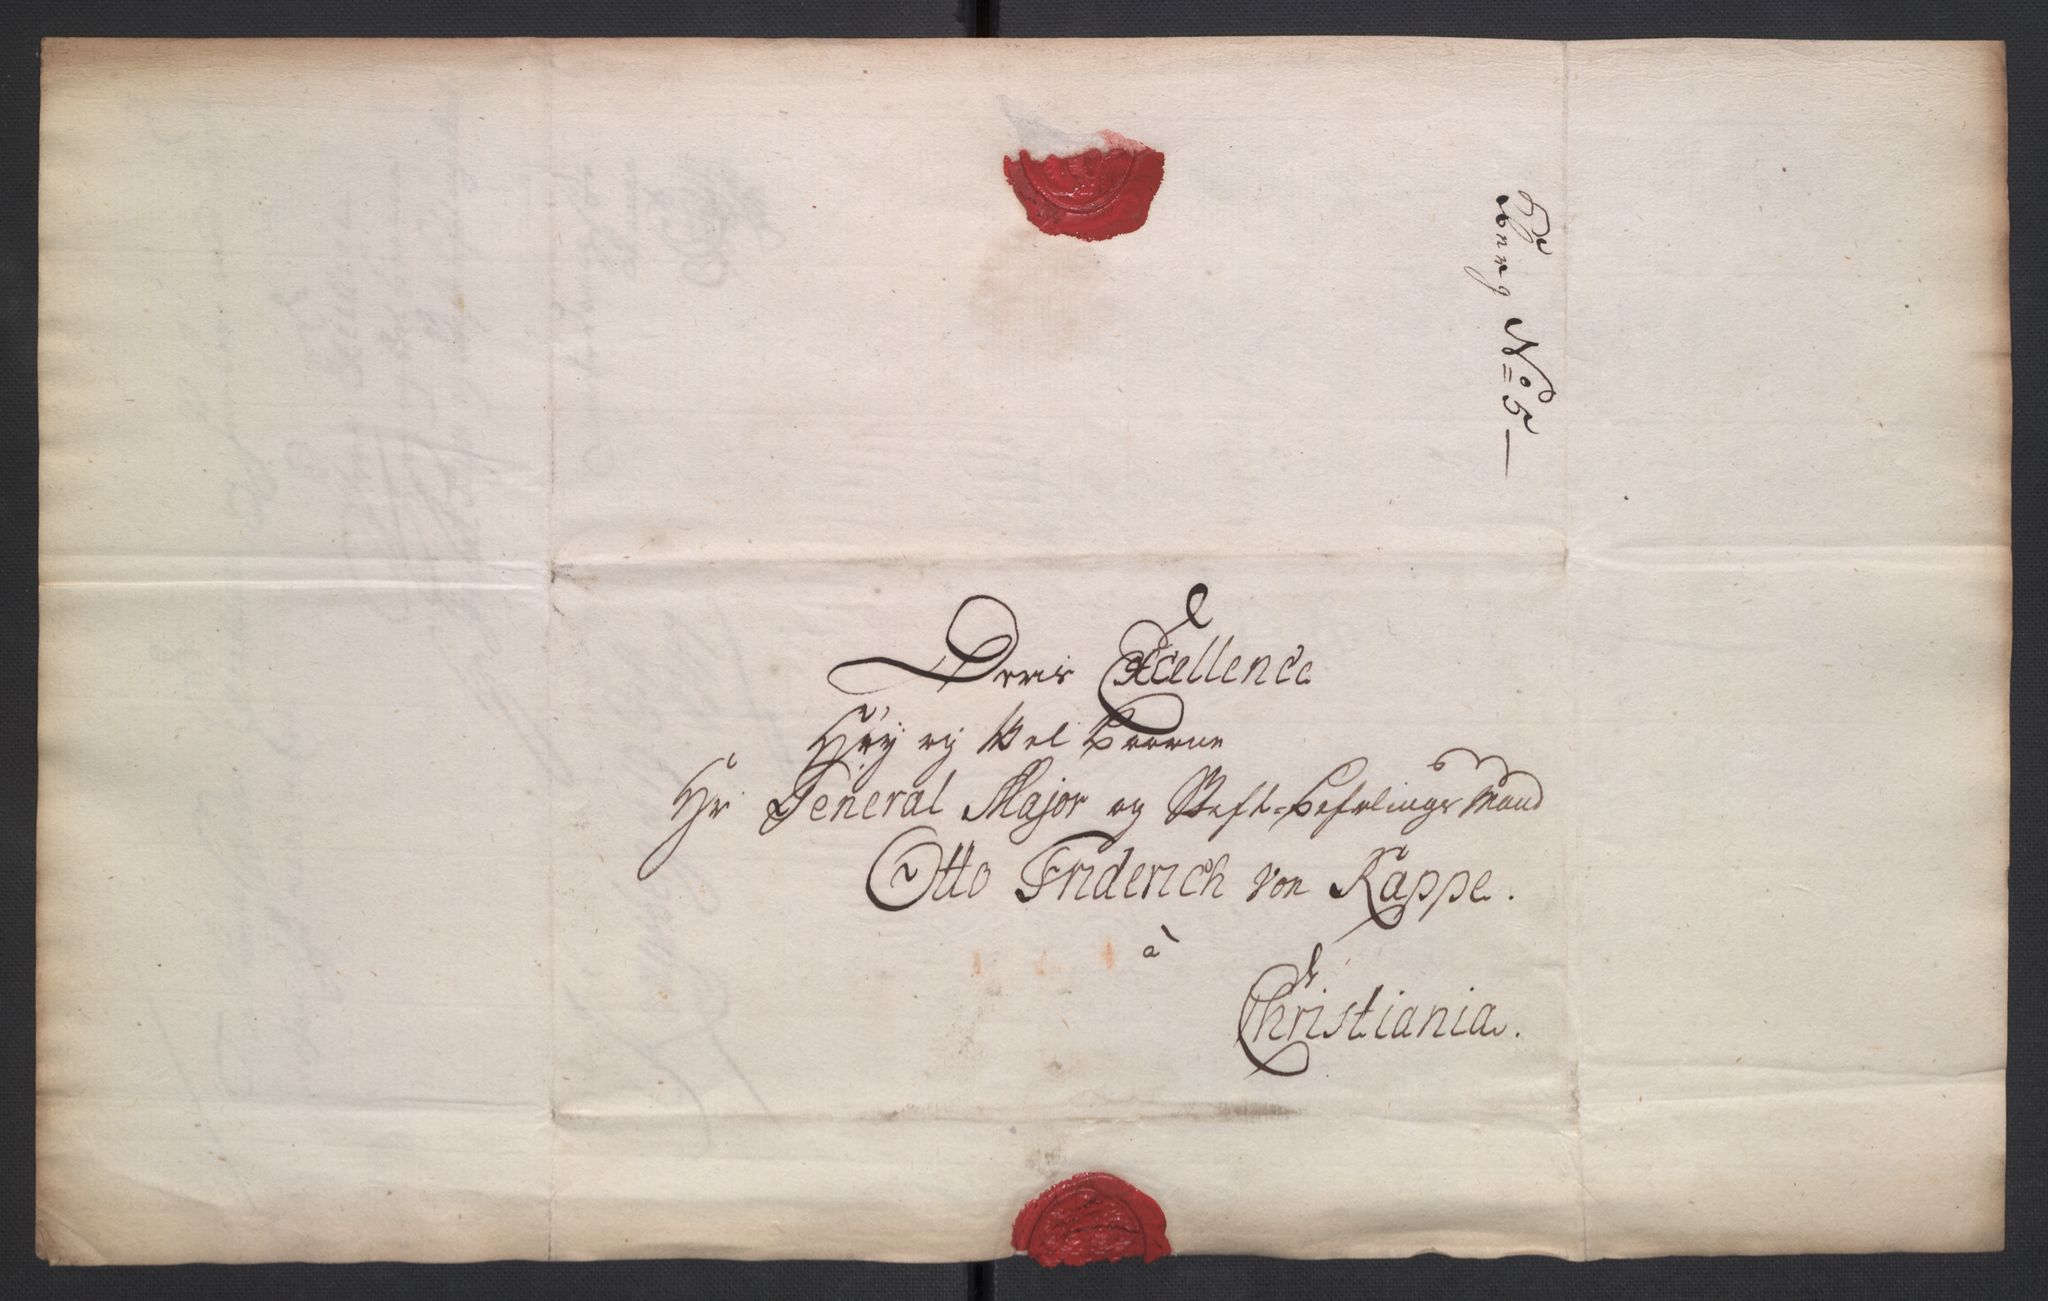 Deris Excellence
Høy og Vel Baarne
Hr General Major og Stift-Befalings Mand
Otto Friderich von Rappe.
à
Christiania.
No: 5 —